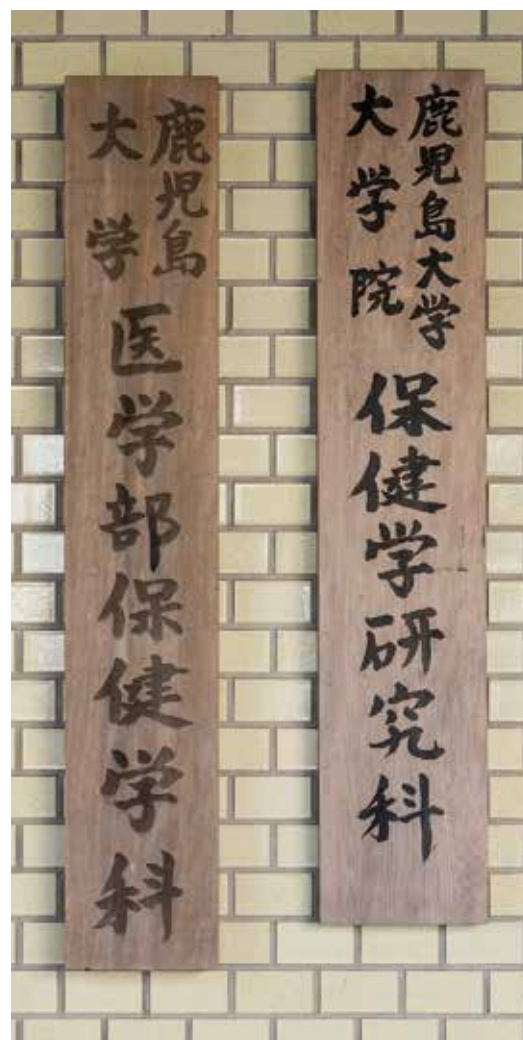 鹿児島大学
大学院
保健学研究科
鹿児島
大学
医学部保健学科